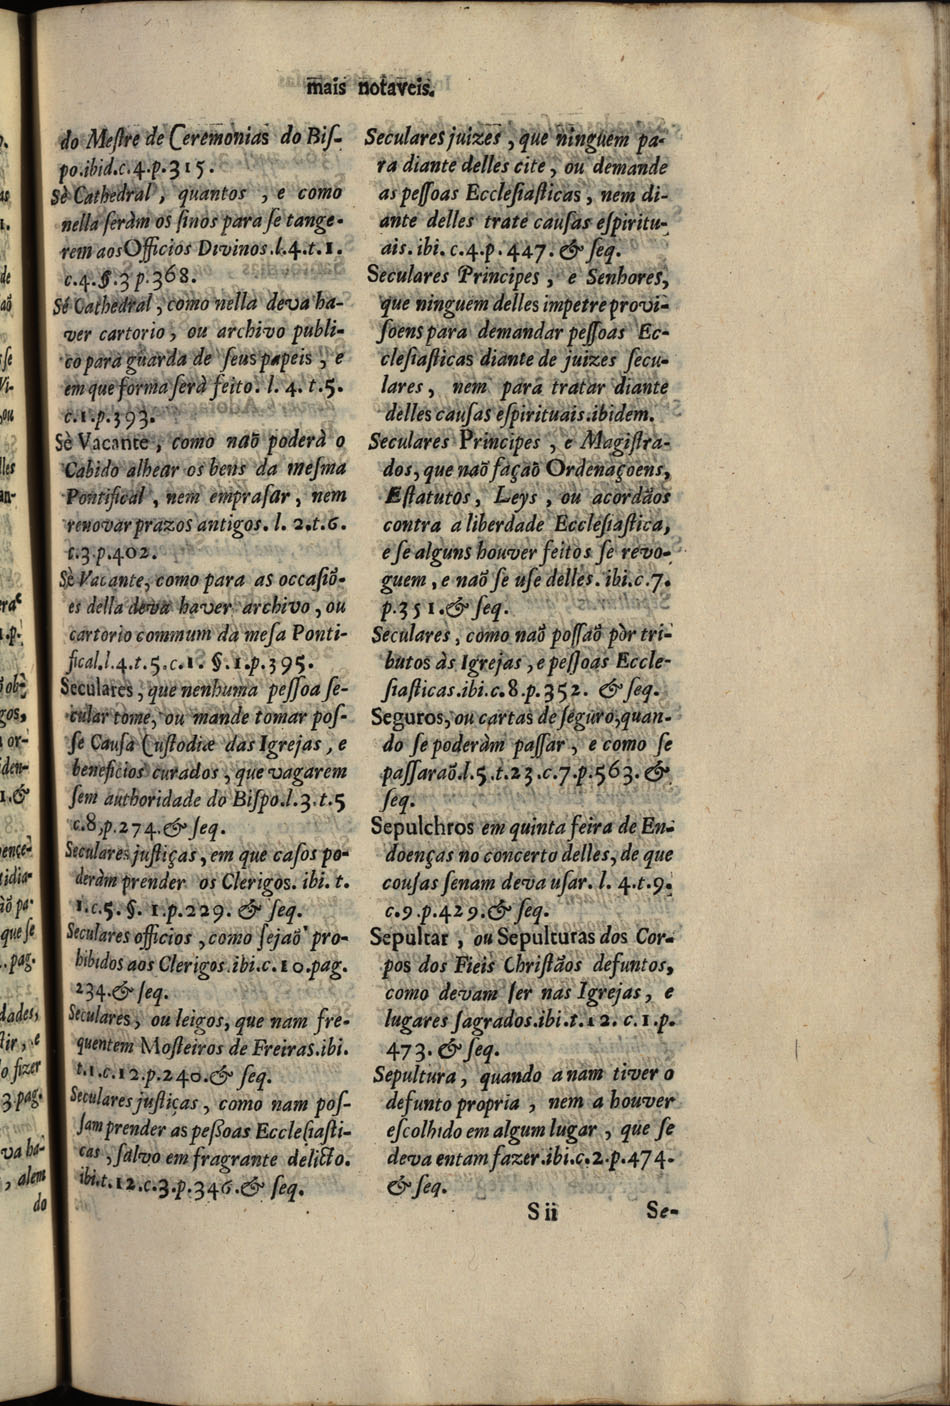 mais notaveis.
do Meſtre de Ceremonias do Biſ-
po.ibid.c.4.p.315.
Sè Cathedral, quantos, e como
nella ſeràm os ſinos para ſe tange-
rem aos Officios Divinos.l.4.t.1.
c.4.§.3 p.368.
Sé Cathedral, como nella deva ha-
ver cartorio, ou archivo publi-
co para guarda de ſeus papeis, e
em que forma ſerà feito. l. 4. t.5.
c.1.p.393.
Sè Vacante, como naõ poderà o
Cabido alhear os bens da meſma
Pontifical, nem empraſar, nem
renovar prazos antigos. l. 2.t.6.
c.3.p.402.
Sè Vacante, como para as occaſiõ-
es della deva haver archivo, ou
cartorio commum da meſa Ponti-
fical.l.4.t.5.c.1. §.1.p.395.
Seculares, que nenhuma peſſoa ſe-
cular tome, ou mande tomar poſ-
ſe Cauſa Cuſtodiæ das Igrejas, e
beneficios curados, que vagarem
ſem authoridade do Biſpo.l.3.t.5
c.8,p.274.& ſeq.
Seculares juſtiças, em que caſos po-
deràm prender os Clerigos. ibi. t.
1.c.5. §. 1.p.229. & ſeq.
Seculares officios, como ſejaõ pro-
hibidos aos Clerigos.ibi.c.10.pag.
234.& ſeq.
Seculares, ou leigos, que nam fre-
quentem Moſteiros de Freiras.ibi.
t.1.c.12.p.240.& ſeq.
Seculares juſtiças, como nam poſ-
ſam prender as peßoas Eccleſiaſti-
cas, ſalvo em fragrante delicto.
ibi.t.12.c.3.p.346.& ſeq.
Seculares juizes, que ninguem pa-
ra diante delles cite, ou demande
as peſſoas Eccleſiaſticas, nem di-
ante delles trate cauſas eſpiritu-
ais. ibi. c.4.p. 447. & ſeq.
Seculares Principes, e Senhores,
que ninguem delles impetre provi-
ſoens para demandar peſſoas Ec-
cleſiaſticas diante de juizes ſecu-
lares, nem para tratar diante
delles cauſas eſpirituais.ibidem.
Seculares Principes, e Magiſtra-
dos, que naõ façaõ Ordenaçoens,
Eſtatutos, Leys, ou acordãos
contra a liberdade Eccleſiaſtica,
e ſe alguns houver feitos ſe revo-
guem, e naõ ſe uſe delles. ibi.c.7.
p.351.& ſeq.
Seculares, como naõ poſſaõ pòr tri-
butos às Igrejas, e peſſoas Eccle-
ſiaſticas.ibi.c.8.p.352. & ſeq.
Seguros, ou cartas de ſeguro, quan-
do ſe poderàm paſſar, e como ſe
paſſaraõ.l.5.t.23.c.7.p.563. &
ſeq.
Sepulchros em quinta feira de En-
doenças no concerto delles, de que
couſas ſenam deva uſar. l. 4.t.9.
c.9.p.429.& ſeq.
Sepultar, ou Sepulturas dos Cor-
pos dos Fieis Chriſtãos defuntos,
como devam ſer nas Igrejas, e
lugares ſagrados.ibi.t.12. c.1.p.
473. & ſeq.
Sepultura, quando a nam tiver o
defunto propria, nem a houver
eſcolhido em algum lugar, que ſe
deva entam fazer.ibi.c.2.p.474.
& ſeq.
S ii
Se-